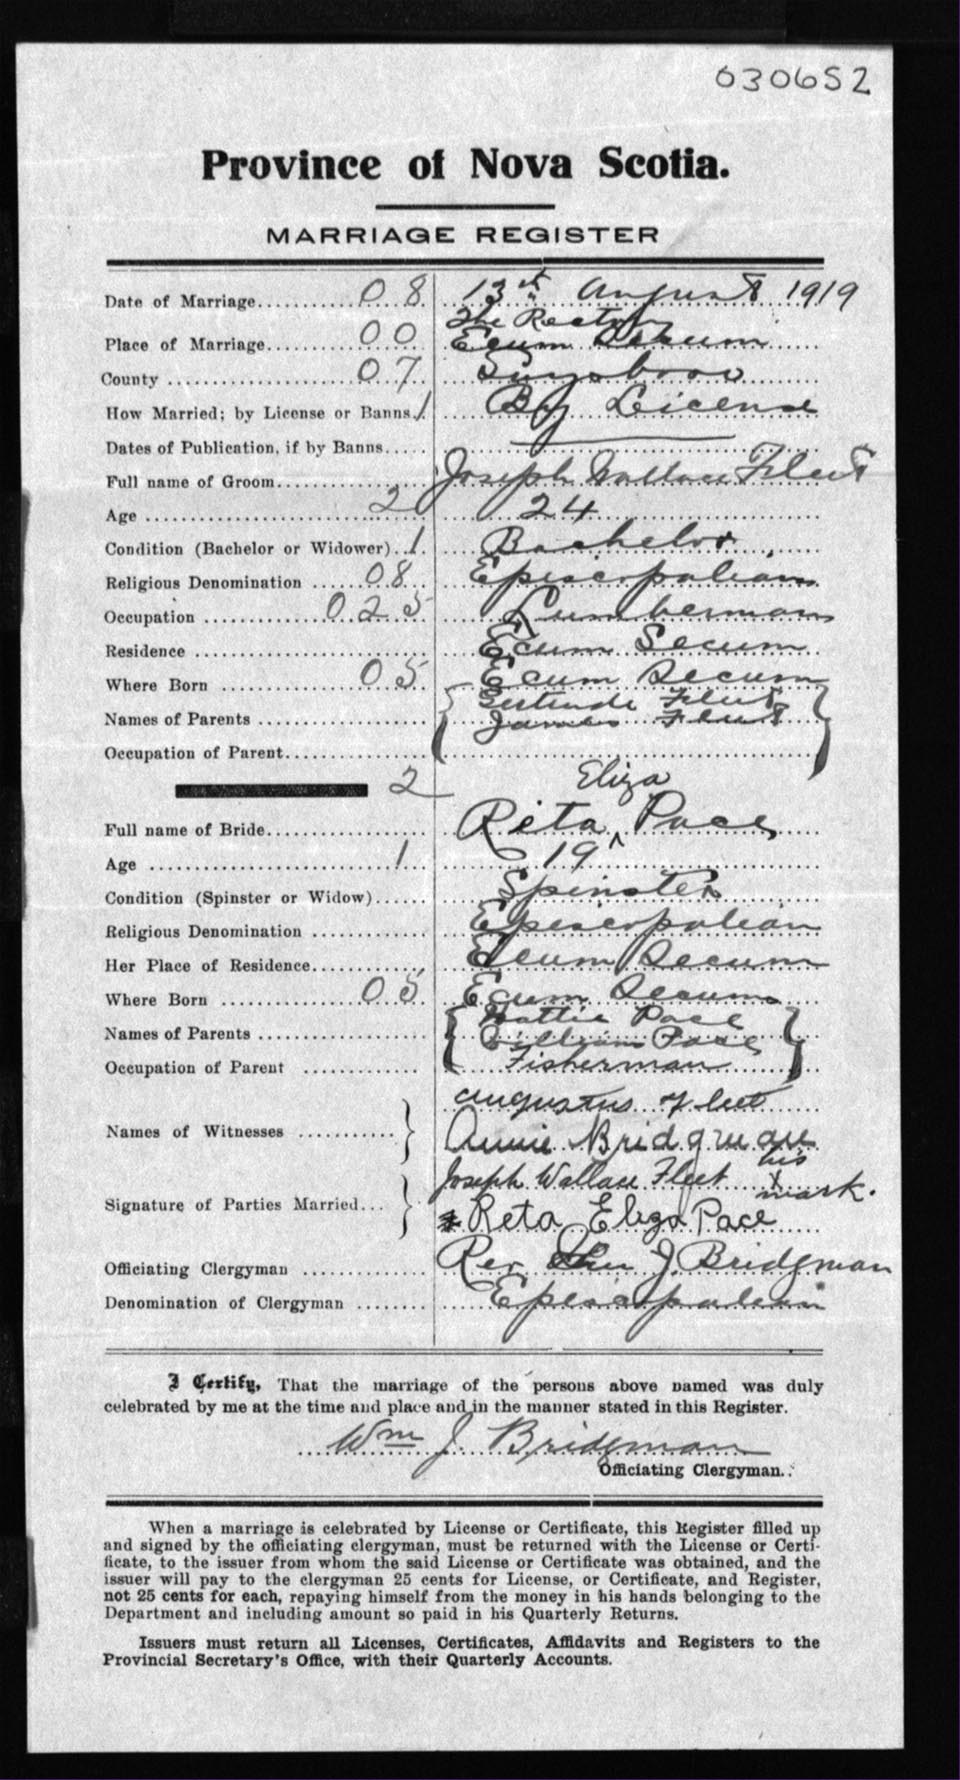 030652
Province of Nova Scotia.
MARRIAGE REGISTER
Date of Marriage 08 13th August 1919
The Rectory
Place of Marriage 00 Ecum Secum
County 07 Guysboro
How Married; by License or Banns 1 By License
Dates of Publication, if by Banns
Full name of Groom Joseph Wallace Fleet
Age 2 24
Condition (Bachelor or Widower) 1 Bachelor
Religious Denomination 08 Episcopalian
Occupation 025 Lumberman
Residence Ecum Secum
Where Born 05 Ecum Secum
Gertrude Fleet
Names of Parents James Fleet
Occupation of Parent
2 Eliza
Full name of Bride Reta ^ Pace
Age 1 19
Condition (Spinster or Widow) Spinster
Religious Denomination Episcopalian
Her Place of Residence Ecum Secum
Where Born 05 Ecum Secum
Hattie Pace
Names of Parents William Pace
Occupation of Parent Fisherman
Augustus Fleet
Names of Witnesses Annie Bridgman
Joseph Wallace Fleet his x mark.
Signature of Parties Married Reta Eliza Pace
Officiating Clergyman Rev J. Bridgman
Denomination of Clergyman Episcopalian
I Certify, That the marriage of the persons above named was duly
celebrated by me at the time and place and in the manner stated in this Register.
Wm J. Bridgman
Officiating Clergyman.
When a marriage is celebrated by License or Certificate, this Register filled up
and signed by the officiating clergyman, must be returned with the License or Certi-
ficate, to the issuer from whom the said License or Certificate was obtained, and the
issuer will pay to the clergyman 25 cents for License, or Certificate, and Register,
not 25 cents for each, repaying himself from the money in his hands belonging to the
Department and including amount so paid in his Quarterly Returns.
Issuers must return all Licenses, Certificates, Affidavits and Registers to the
Provincial Secretary's Office, with their Quarterly Accounts.